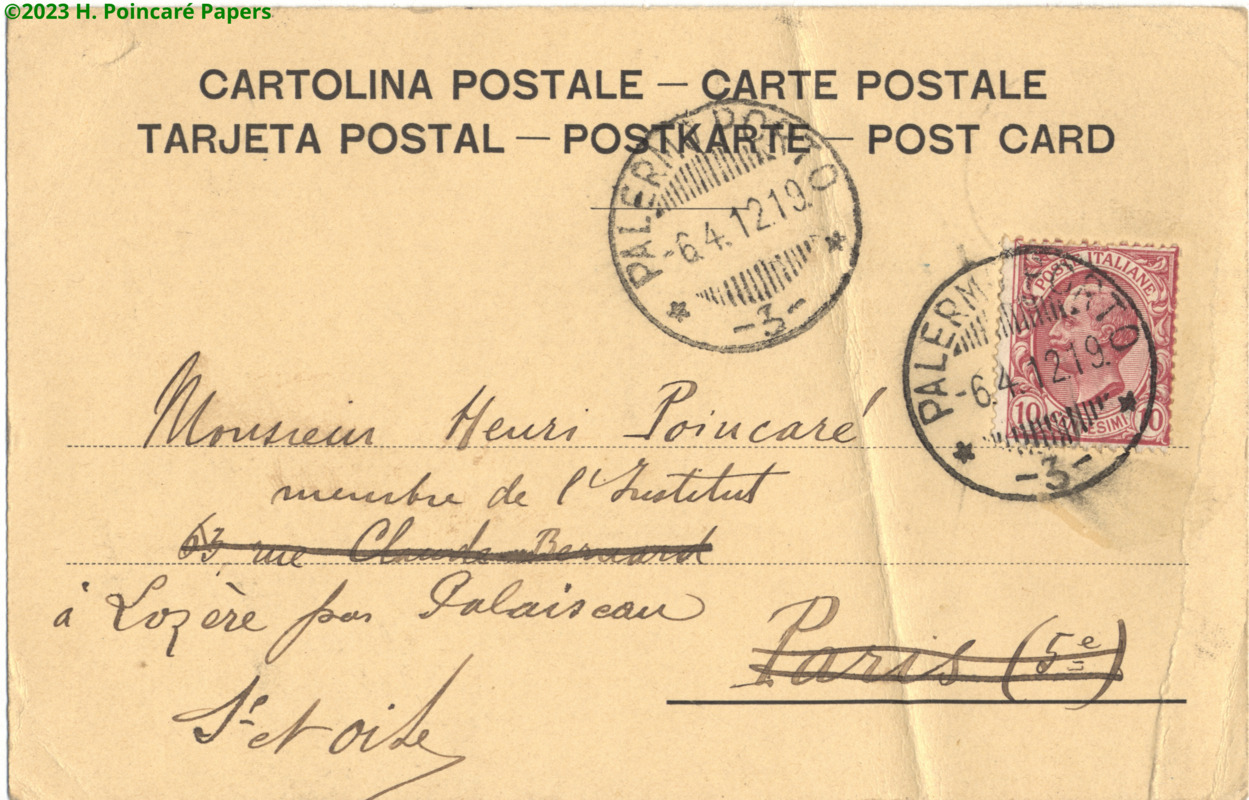 ©2023 H. Poincaré Papers
CARTOLINA POSTALE — CARTE POSTALE
TARJETA POSTAL — POSTKARTE — POST CARD
PALERMO PORTO
-6.4.12.19.
-3-
POSTE ITALIANE
10 CENTESIMI 10
PALERMO PORTO
-6.4.12.19.
-3-
Monsieur Henri Poincaré
membre de l'Institut
63, rue Claude Bernard
à Lozère par Palaiseau
Paris (5e)
Se et Oise